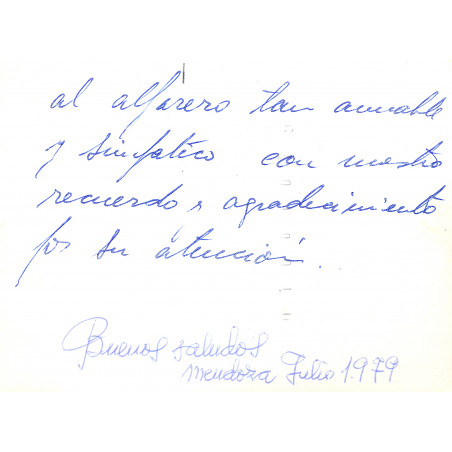 al alfarero tan amable
y simpatico con nuestro
recuerdo y agradecimiento
por su atención.
Buenos saludos
Mendoza Julio 1.979